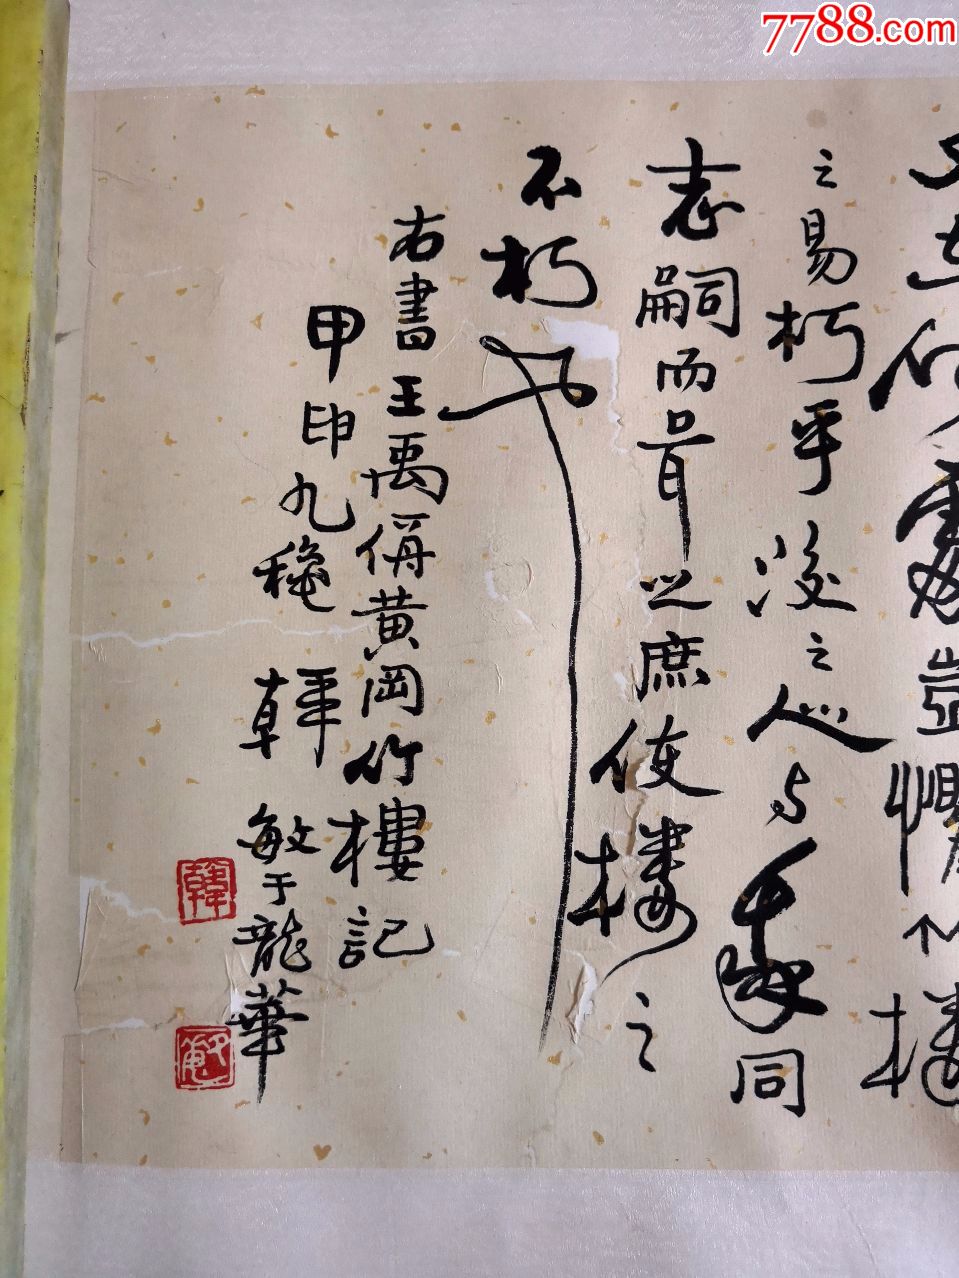 7788.com
處豈懼竹樓
之易朽乎後之人與我同
志嗣而葺之庶使樓之
不朽也
右書王禹偁黃岡竹樓記
甲申九穐 韓敏于龍華
韓
敏